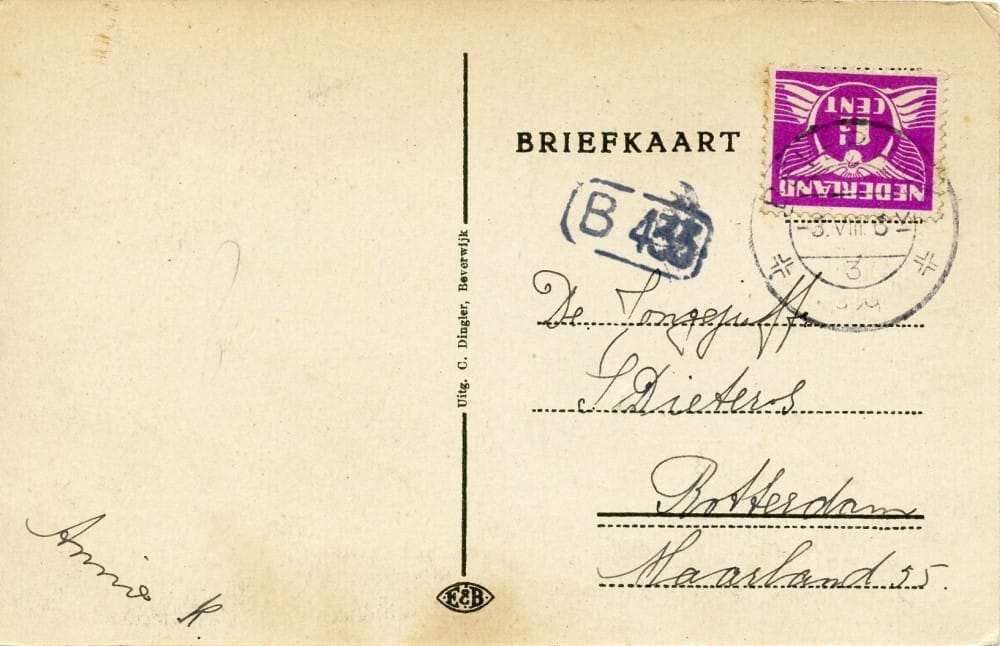 BRIEFKAART
NEDERLAND
CENT
B 433
-3.VIII
3
Uitg. C. Dingler, Beverwijk
De Jongejuffr
S Dieters
Rotterdam
Maarland 55.
Annie K
E&B